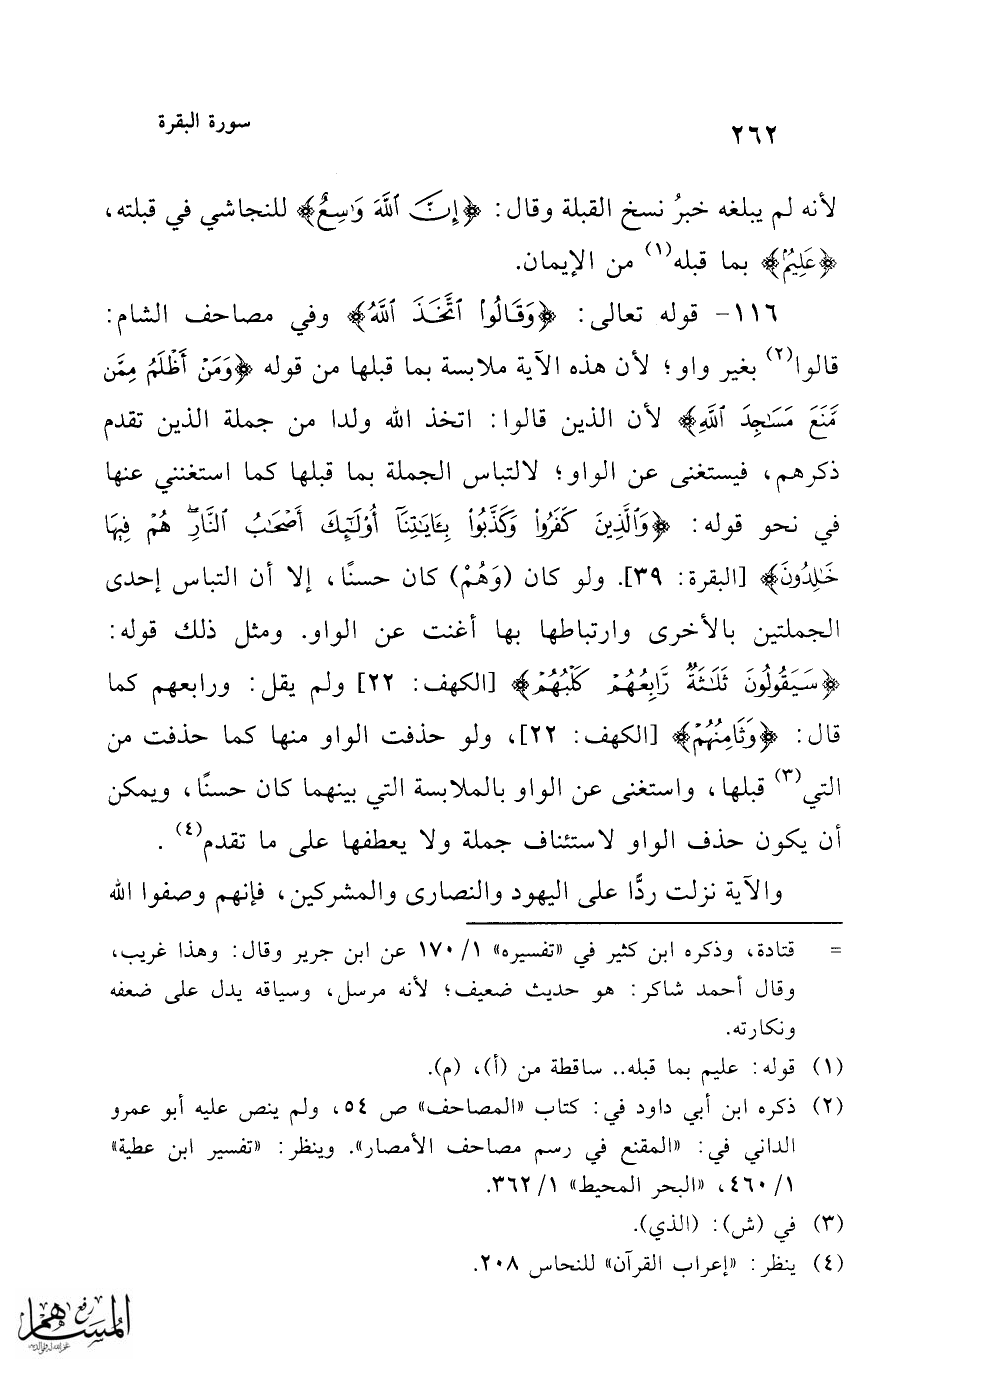 ٢٦٢
سورة البقرة
لأنه لم يبلغه خبرُ نسخ القبلة وقال: ﴿إِنَّ ٱللَّهَ وَٰسِعٌ﴾ للنجاشي في قبلته،
﴿عَلِيمٌ﴾ بما قبله(١) من الإيمان.
١١٦- قوله تعالى: ﴿وَقَالُوا۟ ٱتَّخَذَ ٱللَّهُ﴾ وفي مصاحف الشام:
قالوا(٢) بغير واو؛ لأن هذه الآية ملابسة بما قبلها من قوله ﴿وَمَنْ أَظْلَمُ مِمَّن
مَّنَعَ مَسَٰجِدَ ٱللَّهِ﴾ لأن الذين قالوا: اتخذ الله ولدا من جملة الذين تقدم
ذكرهم، فيستغنى عن الواو؛ لالتباس الجملة بما قبلها كما استغنني عنها
في نحو قوله: ﴿وَٱلَّذِينَ كَفَرُوا۟ وَكَذَّبُوا۟ بِـَٔايَٰتِنَآ أُو۟لَٰٓئِكَ أَصْحَٰبُ ٱلنَّارِۖ هُمْ فِيهَا
خَٰلِدُونَ﴾ [البقرة: ٣٩]. ولو كان (وَهُمْ) كان حسنًا، إلا أن التباس إحدى
الجملتين بالأخرى وارتباطها بها أغنت عن الواو. ومثل ذلك قوله:
﴿سَيَقُولُونَ ثَلَٰثَةٌ رَّابِعُهُمْ كَلْبُهُمْ﴾ [الكهف: ٢٢] ولم يقل: ورابعهم كما
قال: ﴿وَثَامِنُهُمْ﴾ [الكهف: ٢٢]، ولو حذفت الواو منها كما حذفت من
التي(٣) قبلها، واستغنى عن الواو بالملابسة التي بينهما كان حسنًا، ويمكن
أن يكون حذف الواو لاستئناف جملة ولا يعطفها على ما تقدم(٤).
والآية نزلت ردًّا على اليهود والنصارى والمشركين، فإنهم وصفوا الله
= قتادة، وذكره ابن كثير في «تفسيره» ١/ ١٧٠ عن ابن جرير وقال: وهذا غريب،
وقال أحمد شاكر: هو حديث ضعيف؛ لأنه مرسل، وسياقه يدل على ضعفه
ونكارته.
(١) قوله: عليم بما قبله.. ساقطة من (أ)، (م).
(٢) ذكره ابن أبي داود في: كتاب «المصاحف» ص ٥٤، ولم ينص عليه أبو عمرو
الداني في: «المقنع في رسم مصاحف الأمصار». وينظر: «تفسير ابن عطية»
١/ ٤٦٠، «البحر المحيط» ١/ ٣٦٢.
(٣) في (ش): (الذي).
(٤) ينظر: «إعراب القرآن» للنحاس ٢٠٨.